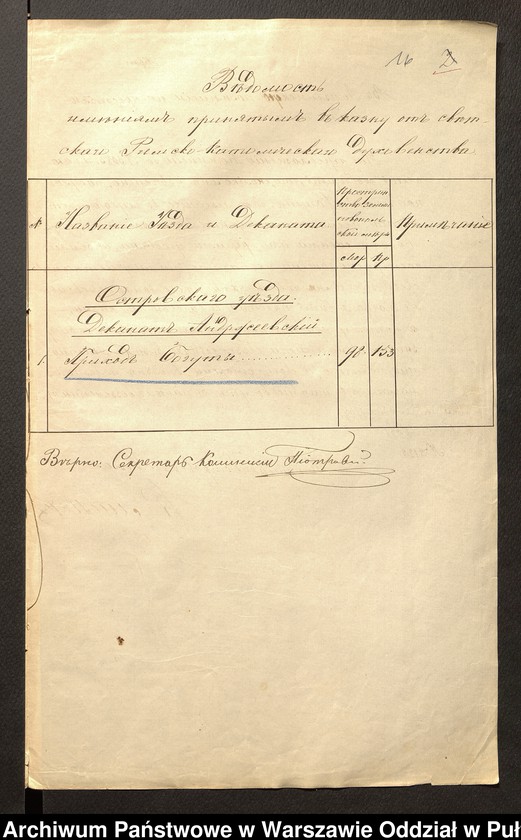 16 2
Вѣдомость
имѣніямъ принятымъ въ казну отъ свѣт-
скаго Римско-Католическаго Духовенства
№ Названіе Уѣзда и Деканата
Простран-
ство земли
новополь-
ской мѣры
Мор Пр
Примѣчаніе
Островскаго уѣзда.
Деканатъ Андржеевскій
1. Приходъ Богуты 98 153
Вѣрно: Секретарь Коммисіи
Archiwum Państwowe w Warszawie Oddział w Puł